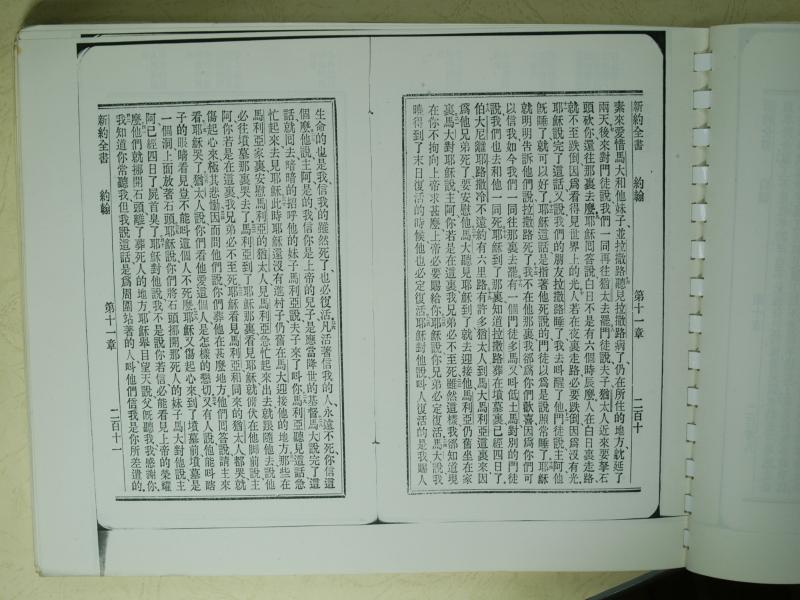 新約全書 約翰 第十一章 二百十
素來愛惜馬大和他妹子並拉撒路聽見拉撒路病了仍在所住的地方就延了
兩天後來對門徒說我們一同再往猶太去罷門徒說夫子猶太人近來要拏石
頭砍你還往那裏去麼耶穌回答說白日不是有六個時辰麼人在白日裏走路
就不至跌倒因爲看得見世界上的光人若在夜裏走路必要跌倒因爲沒有光
耶穌說完了這話又說我們的朋友拉撒路睡了我去叫醒了他門徒說主阿他
旣睡了就可以好了耶穌這話是指著他死說的門徒以爲是說照常睡了耶穌
就明明告訴他們說拉撒路死了我不在他那裏我卻爲你們歡喜因爲你們可
以信我如今我們一同往那裏去罷有一個門徒多馬又叫低土馬對別的門徒
說我們也去和他一同死耶穌到了那裏知道拉撒路葬在墳墓裏已經四日了
伯大尼離耶路撒冷不遠約有六里路有許多猶太人到馬大馬利亞這裏來因
爲他兄弟死了要安慰他馬大聽見耶穌到了就去迎接他馬利亞仍舊坐在家
裏馬大對耶穌說主阿你若是在這裏我兄弟必不至死雖然這樣我卻知道現
在你不拘向上帝求甚麼上帝必要賜給你耶穌說你兄弟必定復活馬大說我
曉得到了末日復活的時候他也必定復活耶穌對他說叫人復活的是我賜人
生命的也是我信我的人雖然死了也必復活凡活著信我的人永遠不死你信這
個麼他說主阿是的我信你是上帝的兒子是應當降世的基督馬大說完了這
話就回去暗暗的招呼他的妹子馬利亞說夫子來了叫你馬利亞聽見這話急
忙起來去見耶穌此時耶穌還沒有進村子仍舊在馬大迎接他的地方那些在
馬利亞家裏安慰馬利亞的猶太人見馬利亞急忙起來出去就跟隨他去說他
必往墳墓那裏哭去了馬利亞到了耶穌那裏看見耶穌就俯伏在他脚前說主
阿你若是在這裏我兄弟必不至死耶穌看見馬利亞和同來的猶太人都哭就
傷起心來極其悲慟因而問他們說你們葬他在甚麼地方他們回答說請主來
看耶穌哭了猶太人說你們看他愛這個人是怎樣的懇切又有人說他能叫瞎
子的眼睛看見豈不能叫這個人不死麼耶穌又傷起心來到了墳墓前墳墓是
一個洞上面放著石頭耶穌說你們將石頭挪開那死人的妹子馬大對他說主
阿已經四日了屍首臭了耶穌對他說我不是說你若信必能看見上帝的榮耀
麼他們就挪開石頭離了葬死人的地方耶穌舉目望天說父旣聽我我感謝你
我知道你常聽我但我說這話是爲周圍站著的人叫他們信我是你所差遣的
新約全書 約翰 第十一章 二百十一